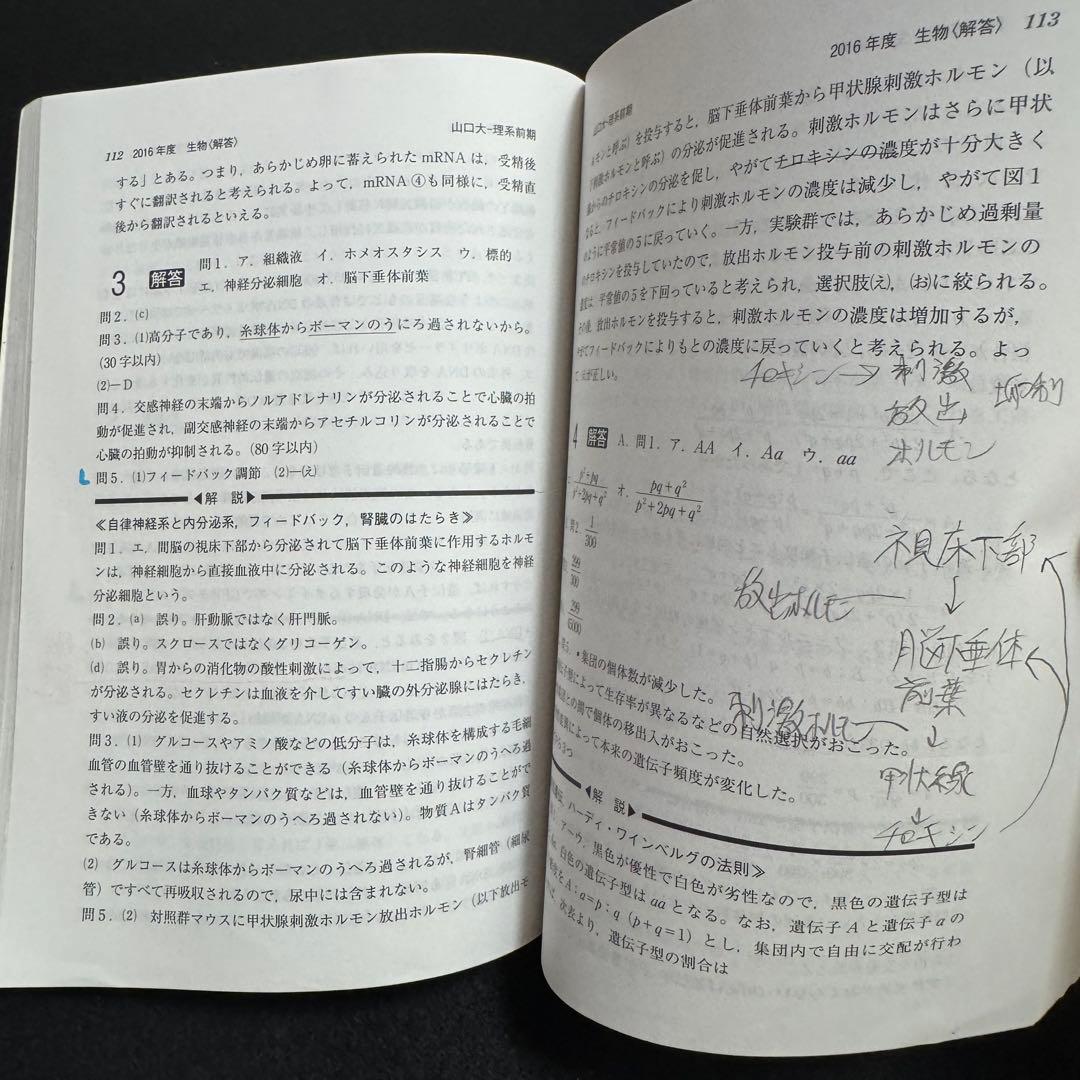 112 2016年度 生物〈解答〉 山口大-理系前期
する」とある。つまり，あらかじめ卵に蓄えられた mRNA は，受精後
すぐに翻訳されると考えられる。よって，mRNA ④も同様に，受精直
後から翻訳されるといえる。
3 解答 問1．ア．組織液 イ．ホメオスタシス ウ．標的
エ．神経分泌細胞 オ．脳下垂体前葉
問2．(c)
問3．(1)高分子であり，糸球体からボーマンのうにろ過されないから。
(30字以内)
(2)－D
問4．交感神経の末端からノルアドレナリンが分泌されることで心臓の拍
動が促進され，副交感神経の末端からアセチルコリンが分泌されることで
心臓の拍動が抑制される。(80字以内)
問5．(1)フィードバック調節 (2)－(え)
◀解 説▶
≪自律神経系と内分泌系，フィードバック，腎臓のはたらき≫
問1．エ．間脳の視床下部から分泌されて脳下垂体前葉に作用するホルモ
ンは，神経細胞から直接血液中に分泌される。このような神経細胞を神経
分泌細胞という。
問2．(a) 誤り。肝動脈ではなく肝門脈。
(b) 誤り。スクロースではなくグリコーゲン。
(d) 誤り。胃からの消化物の酸性刺激によって，十二指腸からセクレチン
が分泌される。セクレチンは血液を介してすい臓の外分泌腺にはたらき，
すい液の分泌を促進する。
問3．(1) グルコースやアミノ酸などの低分子は，糸球体を構成する毛細
血管の血管壁を通り抜けることができる（糸球体からボーマンのうへろ過
される）。一方，血球やタンパク質などは，血管壁を通り抜けることがで
きない（糸球体からボーマンのうへろ過されない）。物質Aはタンパク質
である。
(2) グルコースは糸球体からボーマンのうへろ過されるが，腎細管（細尿
管）ですべて再吸収されるので，尿中には含まれない。
問5．(2) 対照群マウスに甲状腺刺激ホルモン放出ホルモン（以下放出ホ
2016年度 生物〈解答〉 113
山口大-理系前期
ルモンと呼ぶ）を投与すると，脳下垂体前葉から甲状腺刺激ホルモン（以
下刺激ホルモンと呼ぶ）の分泌が促進される。刺激ホルモンはさらに甲状
腺からのチロキシンの分泌を促し，やがてチロキシンの濃度が十分大きく
なると，フィードバックにより刺激ホルモンの濃度は減少し，やがて図1
のように平常値の5に戻っていく。一方，実験群では，あらかじめ過剰量
のチロキシンを投与していたので，放出ホルモン投与前の刺激ホルモンの
濃度は，平常値の5を下回っていると考えられ，選択肢(え)，(お)に絞られる。
その後，放出ホルモンを投与すると，刺激ホルモンの濃度は増加するが，
やがてフィードバックによりもとの濃度に戻っていくと考えられる。よっ
が正しい。
チロキシン→刺激
放出
ホルモン
4 解答 A．問1．ア．AA イ．Aa ウ．aa
p²+pq/p²+2pq+q² オ．pq+q²/p²+2pq+q²
問2．1/300
299/300
視床下部
↓
放出ホルモン
脳下垂体
前葉
↓
刺激ホルモン
甲状線
↓
チロキシン
・集団の個体数が減少した。
によって生存率が異なるなどの自然選択がおこった。
との間で個体の移出入がおこった。
によって本来の遺伝子頻度が変化した。
◀解 説▶
ハーディ・ワインベルグの法則≫
ア～ウ．黒色が優性で白色が劣性なので，黒色の遺伝子型は
白色の遺伝子型は aa となる。なお，遺伝子 A と遺伝子 a の
A：a＝p：q（p＋q＝1）とし，集団内で自由に交配が行わ
次表より，遺伝子型の割合は